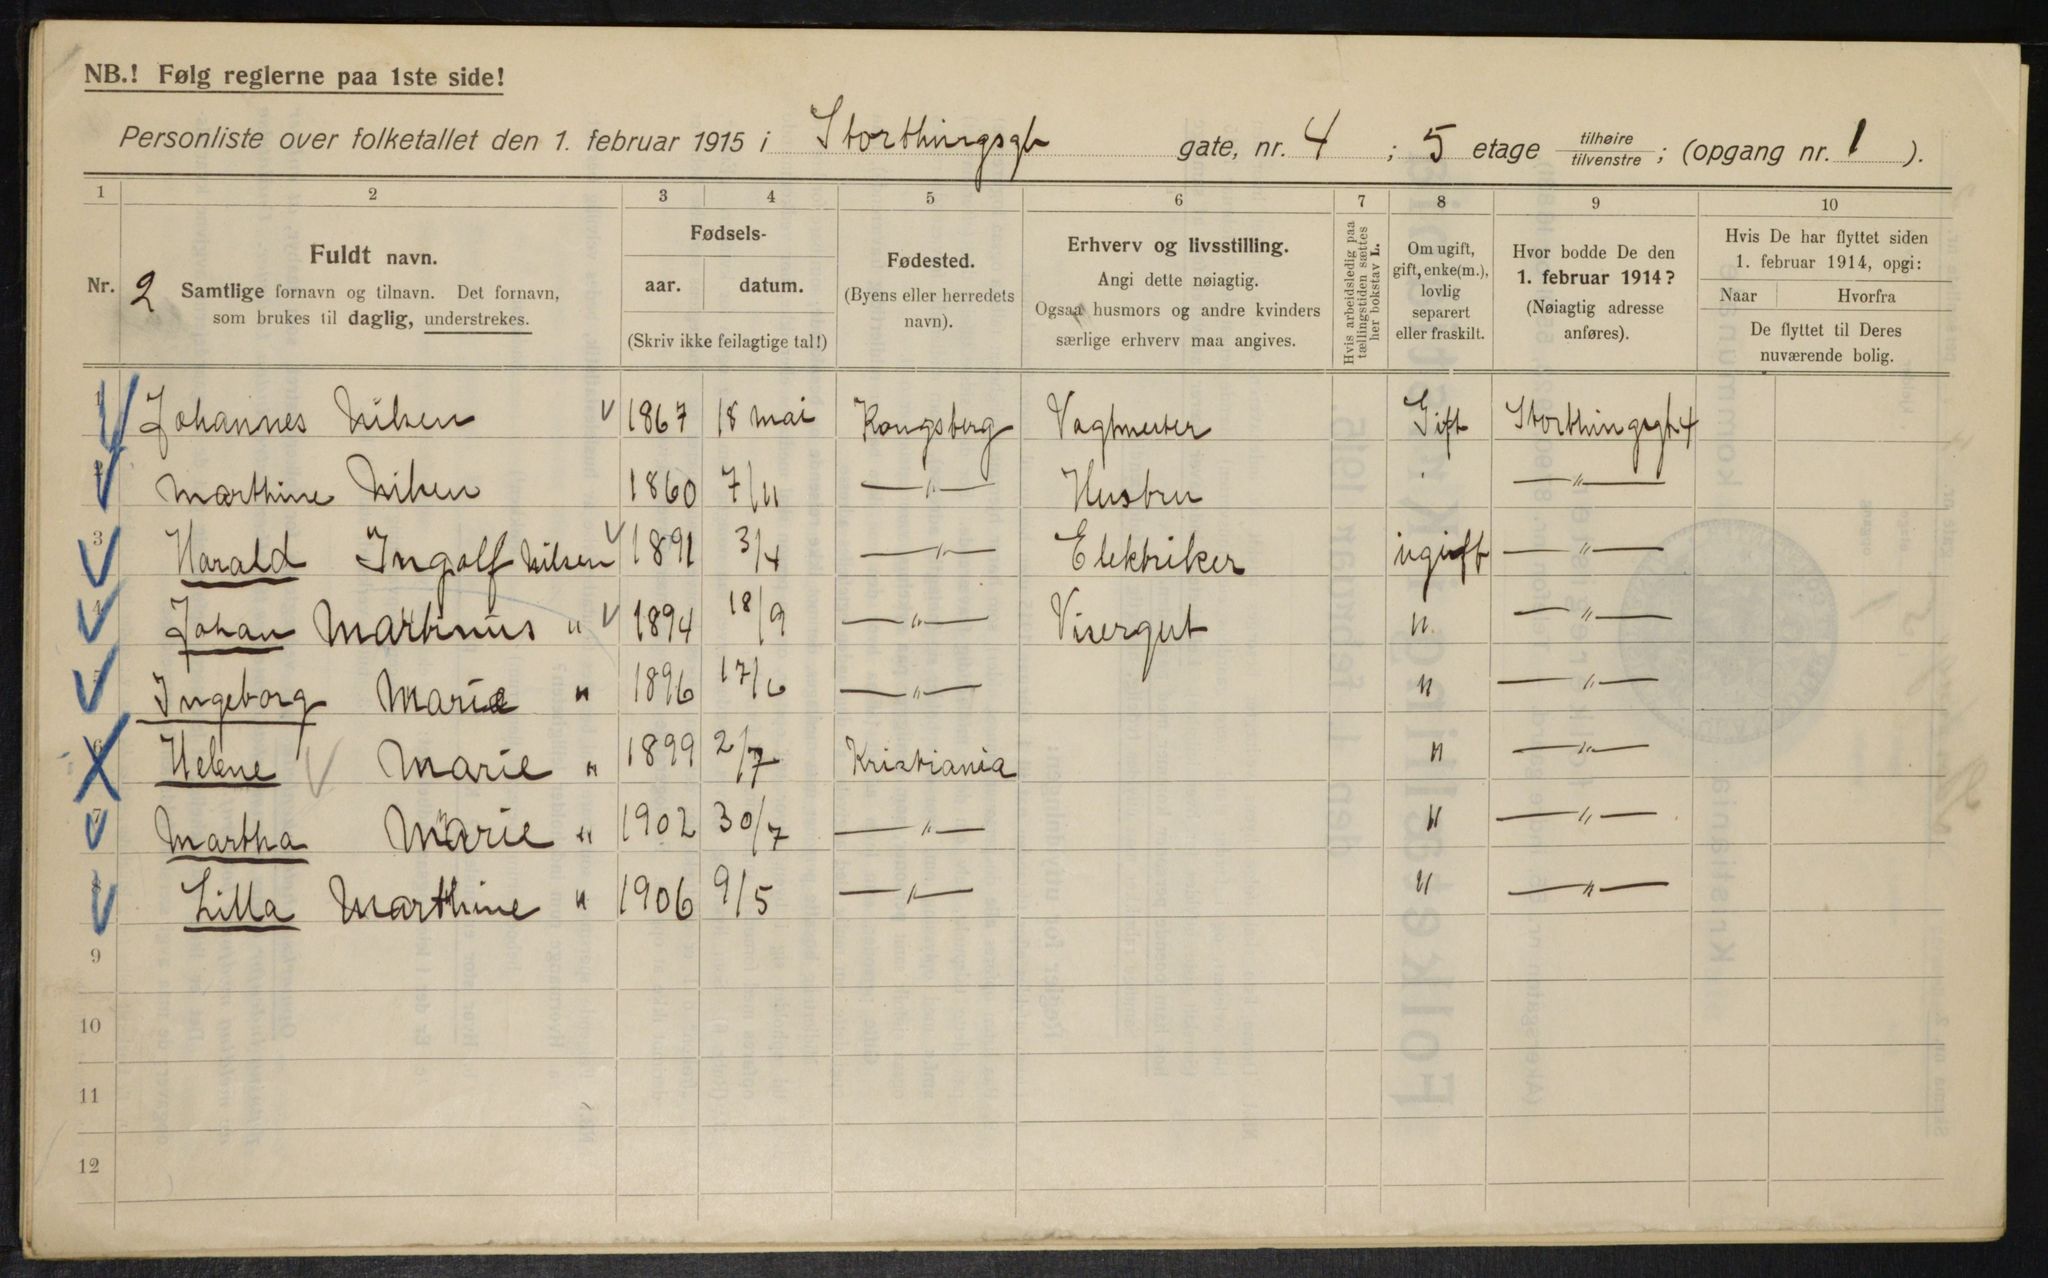 NB.! Følg reglerne paa 1ste side!
Personliste over folketallet den 1. februar 1915 i Storthingsgt gate, nr. 4 ; 5 etage tilhøire tilvenstre ; (opgang nr. 1 ).
1 2 3 4 5 6 7 8 9 10
Nr. 2
Fuldt navn.
Samtlige fornavn og tilnavn. Det fornavn,
som brukes til daglig, understrekes.
Fødsels-
aar. datum.
(Skriv ikke feilagtige tal!)
Fødested.
(Byens eller herredets
navn).
Erhverv og livsstilling.
Angi dette nøiagtig.
Ogsaa husmors og andre kvinders
særlige erhverv maa angives.
Hvis arbeidsledig paa
tællingstiden sættes
her bokstav L.
Om ugift,
gift, enke(m.),
lovlig
separert
eller fraskilt.
Hvor bodde De den
1. februar 1914?
(Nøiagtig adresse
anføres).
Hvis De har flyttet siden
1. februar 1914, opgi:
Naar Hvorfra
De flyttet til Deres
nuværende bolig.
1 Johannes Nilsen 1867 18 mai Kongsberg Vagtmester Gift Storthingsgt 4
2 Marthine Nilsen 1860 7/11 —"— Hustru —"—
3 Harald Ingolf Nilsen 1891 3/4 —"— Elektriker ugift —"—
4 Johan Martinus " 1894 18/9 —"— Visergut " —"—
5 Ingeborg Marie " 1896 17/6 —"— " —"—
6 Helene Marie " 1899 2/7 Kristiania " —"—
7 Martha Marie " 1902 30/7 —"— " —"—
8 Lilla Marthine " 1906 9/5 —"— " —"—
9
10
11
12